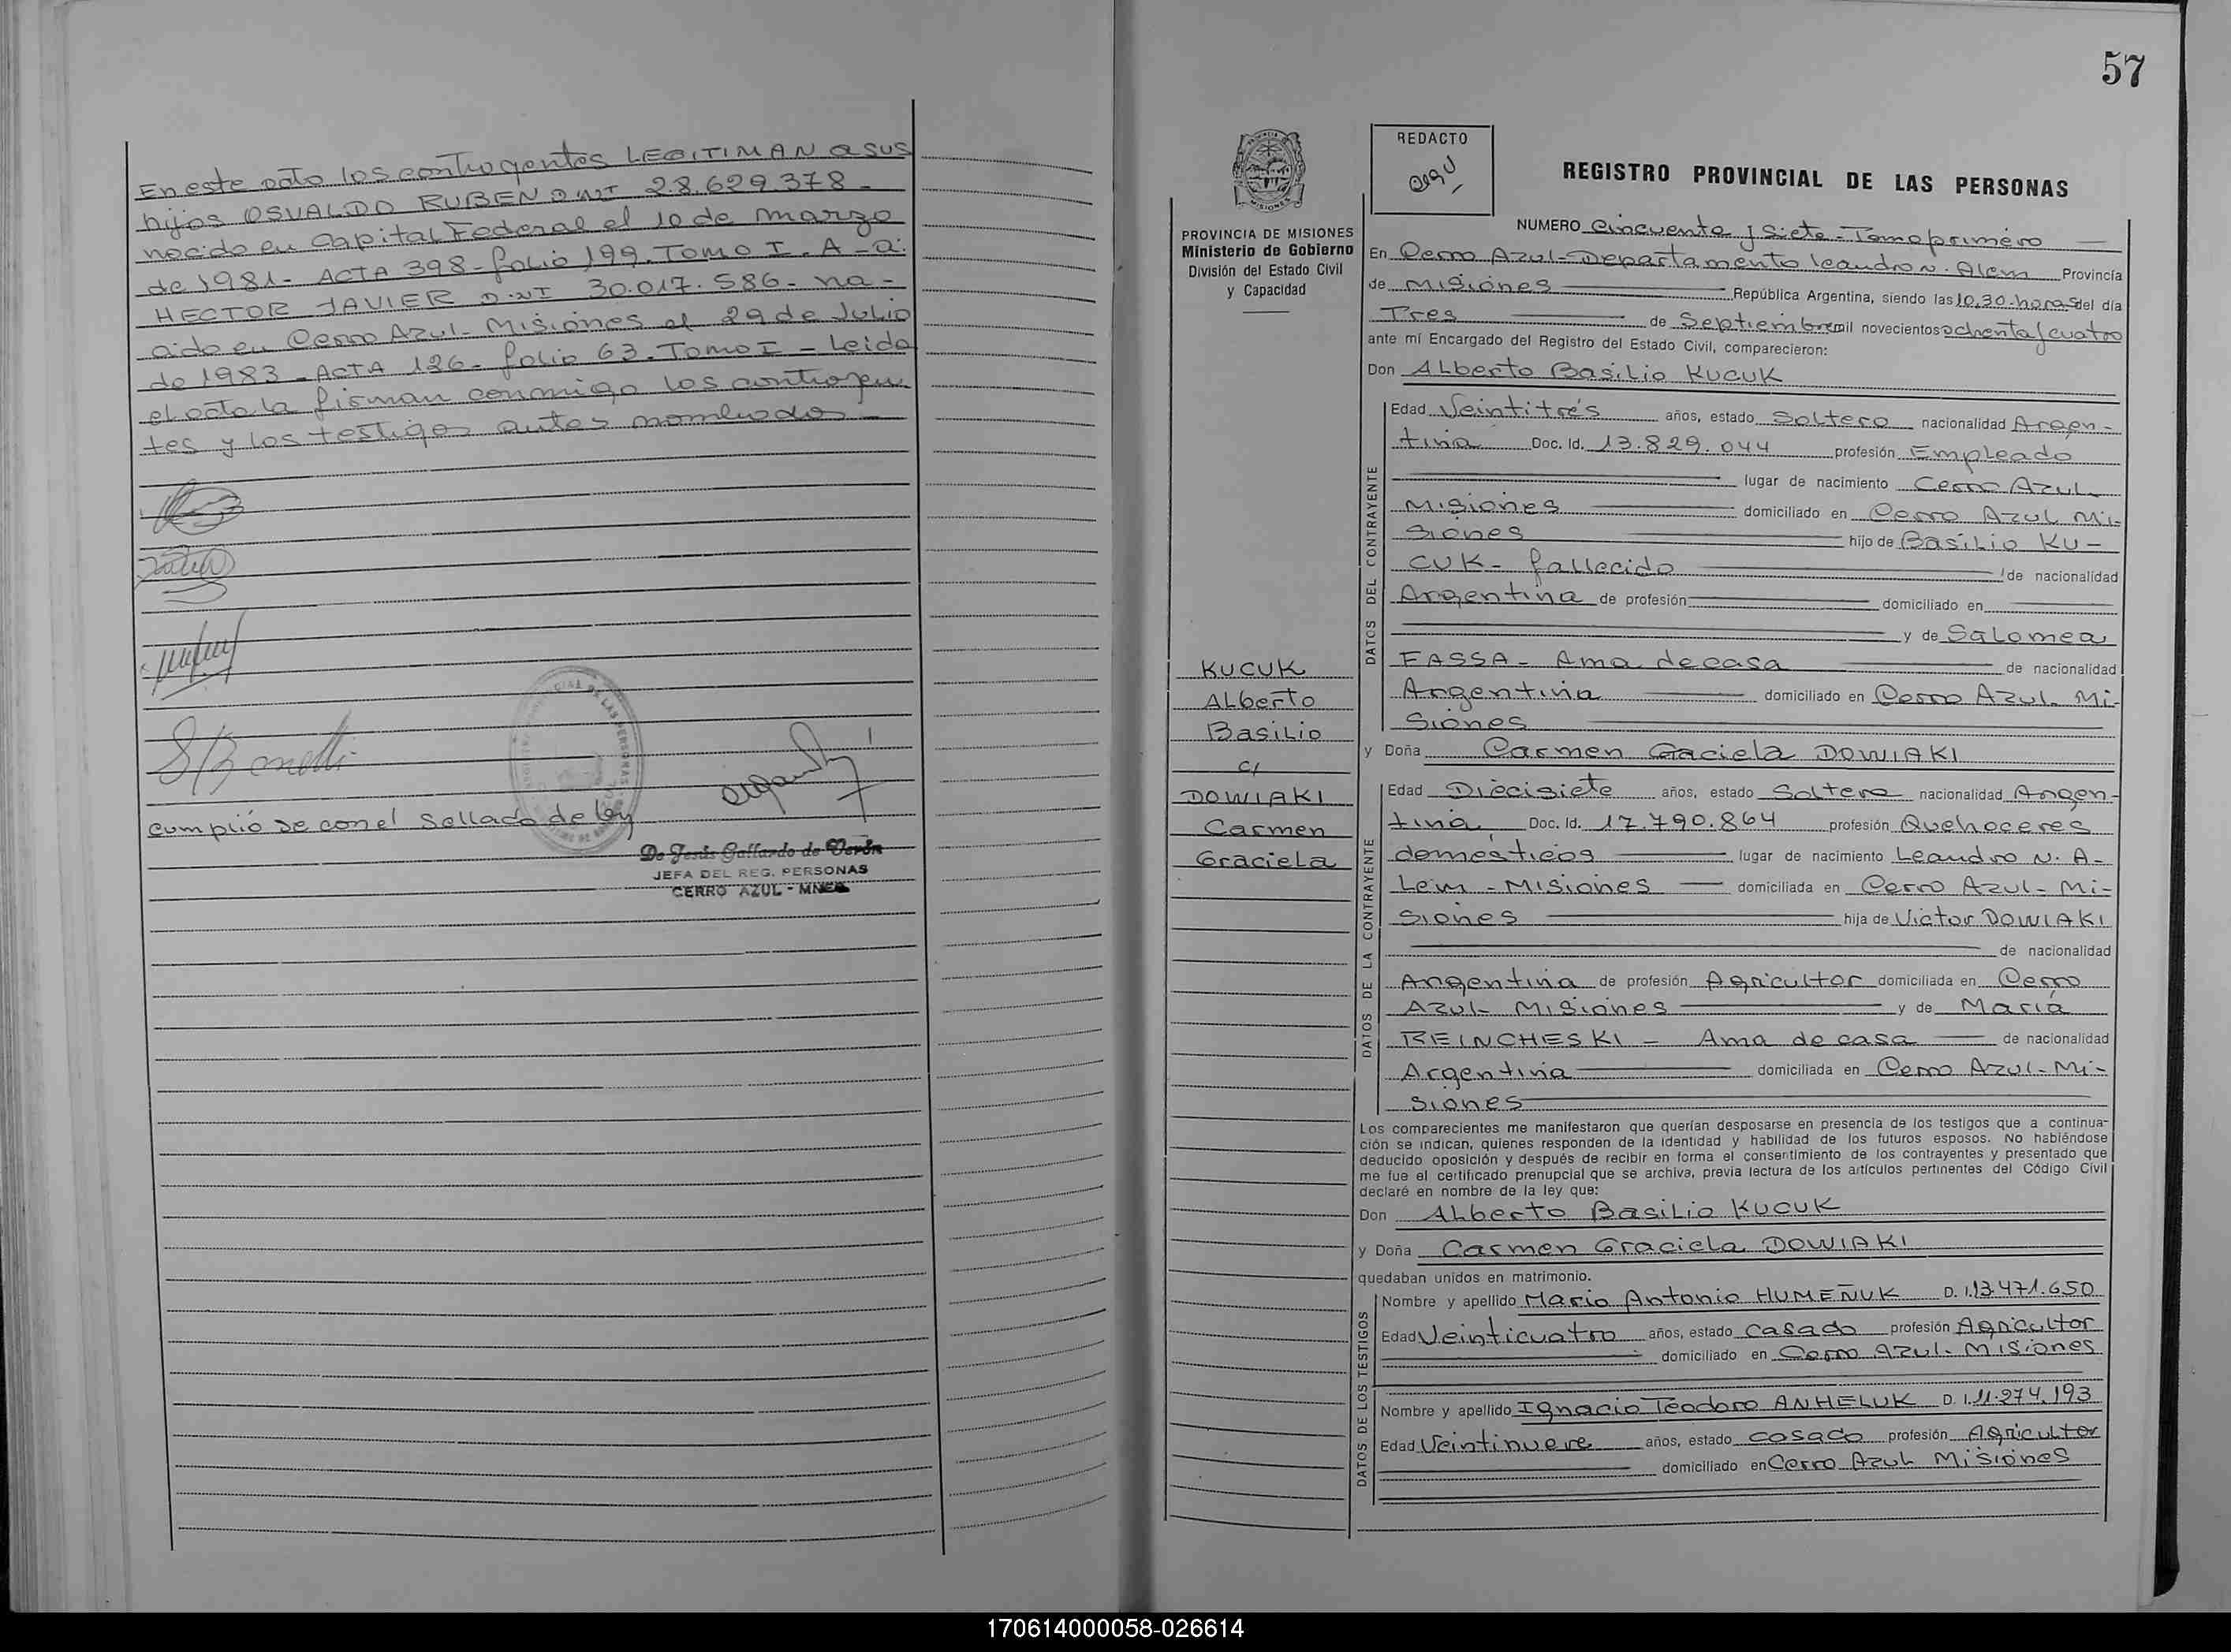 En este acto los contrayentes LEGITIMAN a sus
hijos OSVALDO RUBEN D.N.I 28.629.378 -
nacido en Capital Federal el 10 de marzo
de 1981 - ACTA 398 - folio 199. Tomo I. A - a:
HECTOR JAVIER D.N.I 30.017.586 - na -
cido en Cerro Azul - Misiones el 29 de Julio
de 1983 - ACTA 126 - folio 63. Tomo I - Leida
el acta la firman conmigo los contrayen
tes y los testigos antes nombrados -
S/Bonetti
cumplió se con el Sellado de ley
De Jesús Gallardo de Verón
JEFA DEL REG. PERSONAS
CERRO AZUL - MNES
57
REDACTO
REGISTRO PROVINCIAL DE LAS PERSONAS
PROVINCIA DE MISIONES
Ministerio de Gobierno
División del Estado Civil
y Capacidad
KUCUK
Alberto
Basilio
c/
DOWIAKI
Carmen
Graciela
NUMERO Cincuenta y Siete - Tomo primero
En Cerro Azul - Departamento Leandro N. Alem Provincia
de Misiones República Argentina, siendo las 10,30 horas del día
Tres de Septiembre mil novecientos ochenta y cuatro
ante mí Encargado del Registro del Estado Civil, comparecieron:
Don Alberto Basilio KUCUK
DATOS DEL CONTRAYENTE
Edad Veintitrés años, estado Soltero nacionalidad Argen -
tina Doc. Id. 13.829.044 profesión Empleado
lugar de nacimiento Cerro Azul
Misiones domiciliado en Cerro Azul Mi-
siones hijo de Basilio KU -
CUK - fallecido de nacionalidad
Argentina de profesión domiciliado en
y de Salomea
FASSA - Ama de casa de nacionalidad
Argentina domiciliado en Cerro Azul - Mi-
siones
y Doña Carmen Graciela DOWIAKI
DATOS DE LA CONTRAYENTE
Edad Diecisiete años, estado Soltera nacionalidad Argen -
tina Doc. Id. 17.790.864 profesión Quehaceres
domésticos lugar de nacimiento Leandro N. A -
lem - Misiones domiciliada en Cerro Azul - Mi -
siones hija de Victor DOWIAKI
de nacionalidad
Argentina de profesión Agricultor domiciliada en Cerro
Azul - Misiones y de María
REINCHESKI - Ama de casa de nacionalidad
Argentina domiciliada en Cerro Azul - Mi -
siones
Los comparecientes me manifestaron que querían desposarse en presencia de los testigos que a continua-
ción se indican, quienes responden de la identidad y habilidad de los futuros esposos. No habiéndose
deducido oposición y después de recibir en forma el consentimiento de los contrayentes y presentado que
me fue el certificado prenupcial que se archiva, previa lectura de los artículos pertinentes del Código Civil
declaré en nombre de la ley que:
Don Alberto Basilio KUCUK
y Doña Carmen Graciela DOWIAKI
quedaban unidos en matrimonio.
DATOS DE LOS TESTIGOS
Nombre y apellido Mario Antonio HUMEÑUK D. I. 13.471.650
Edad Veinticuatro años, estado casado profesión Agricultor
domiciliado en Cerro Azul - Misiones
Nombre y apellido Ignacio Teodoro ANHELUK D. I. 11.274.193
Edad Veintinueve años, estado casado profesión Agricultor
domiciliado en Cerro Azul Misiones
170614000058-026614